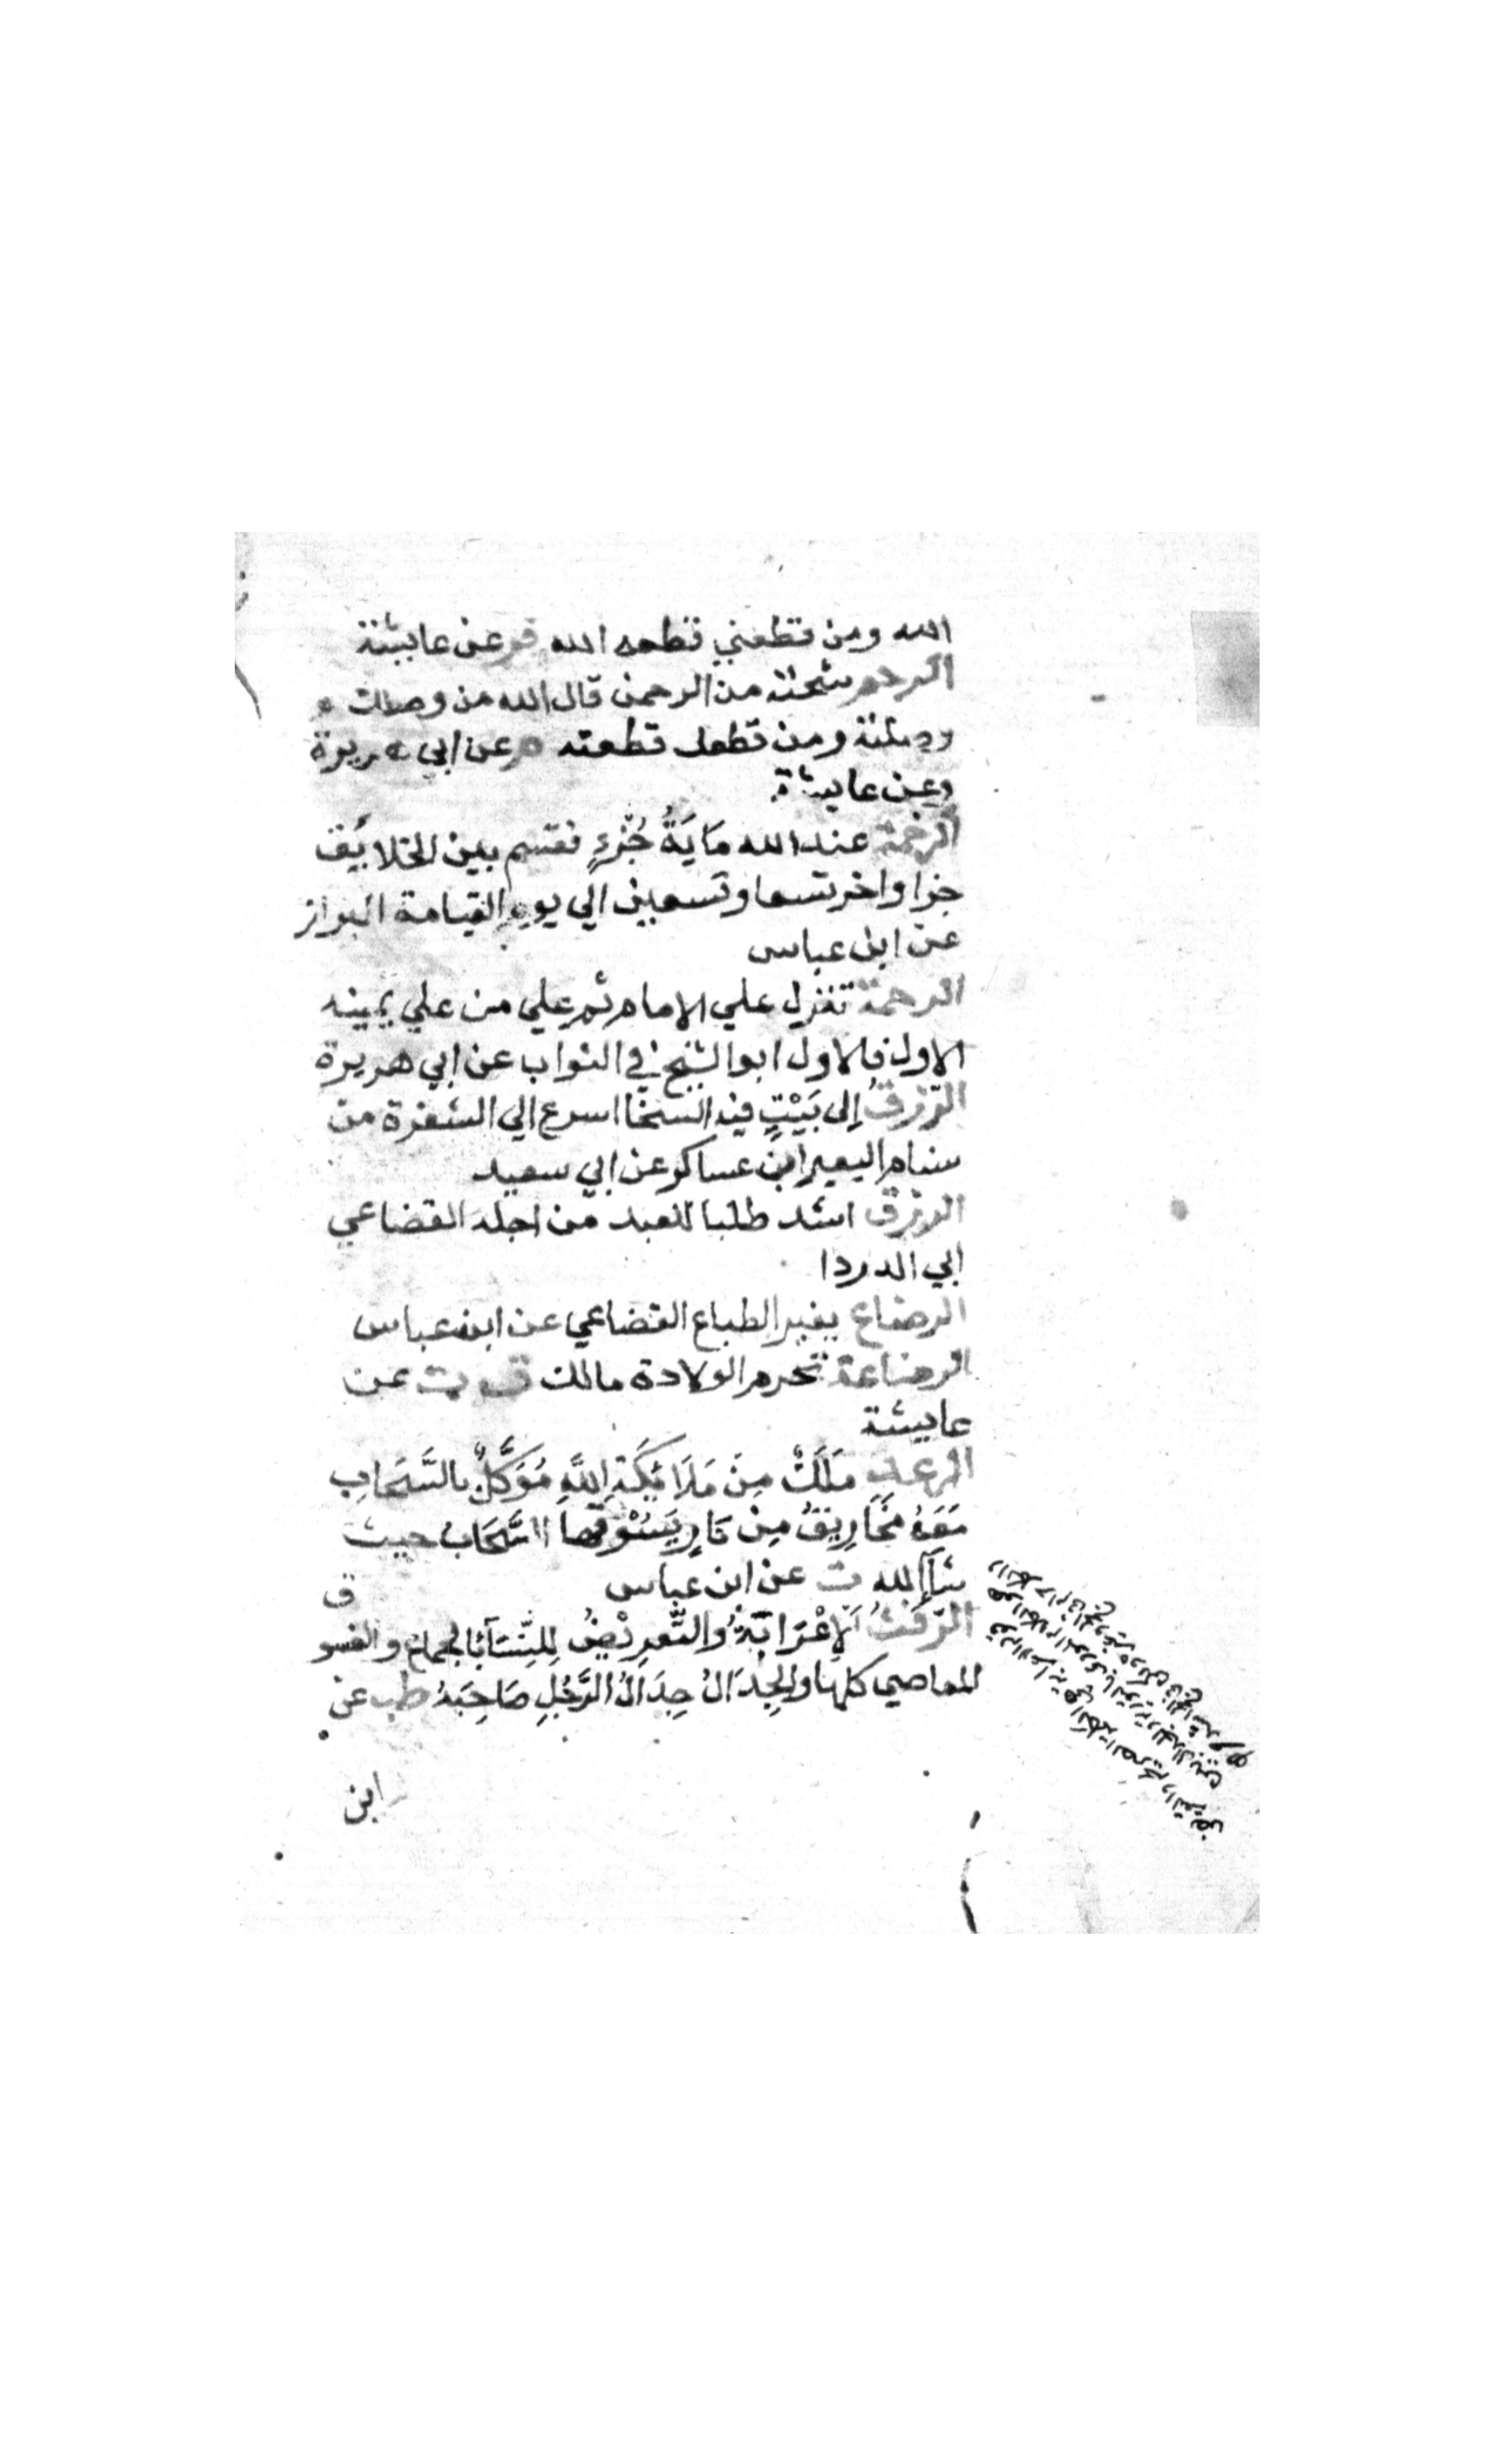 الله ومن قطعني قطعه الله ق عن عايشة
الرحم شجنة من الرحمن قال الله من وصلك
وصلته ومن قطعك قطعته عن ابي هريرة
وعن عايشة
الرحمة عند الله مَايَةُ جُزْءٍ فقسم بين الخلايَق
جزا واخر تسعا وتسعين الي يوم القيامة البزاز
عن ابن عباس
الرحمة تنزل علي الامام ثم علي من علي يمينه
الاول فالاول ابو الشيخ في الثواب عن ابي هريرة
الرّزقُ إلى بَيْتٍ فيه السخا اسرع الي الشفرة من
سنام البعير ابن عساكر عن ابي سعيد
الرزق اشد طلبا للعبد من اجله القضاعي
ابي الدردا
الرضاع يغير الطباع القضاعي عن ابن عباس
الرضاعة تحرم الولادة مالك ق ت عن
عايشة
الرعد مَلَكٌ مِنَ مَلَائِكَةِ اللَّهِ مُوَكَّلٌ بالسَّحَابِ
مَعَهُ مَخَارِيقُ مِنْ نَارٍ يَسُوْقُ بها السَّحَابَ حيث
شآء الله ت عن ابن عباس
ق
الرَّفَثُ اَلإعْرَابَةُ والتَّعرِيْضُ لِلنِّسَآءِ بالجماع والفسو
المعاصي كلها والجِدَالُ جِدَالُ الرَّجُلِ صَاحِبَهُ طب عن
ابن